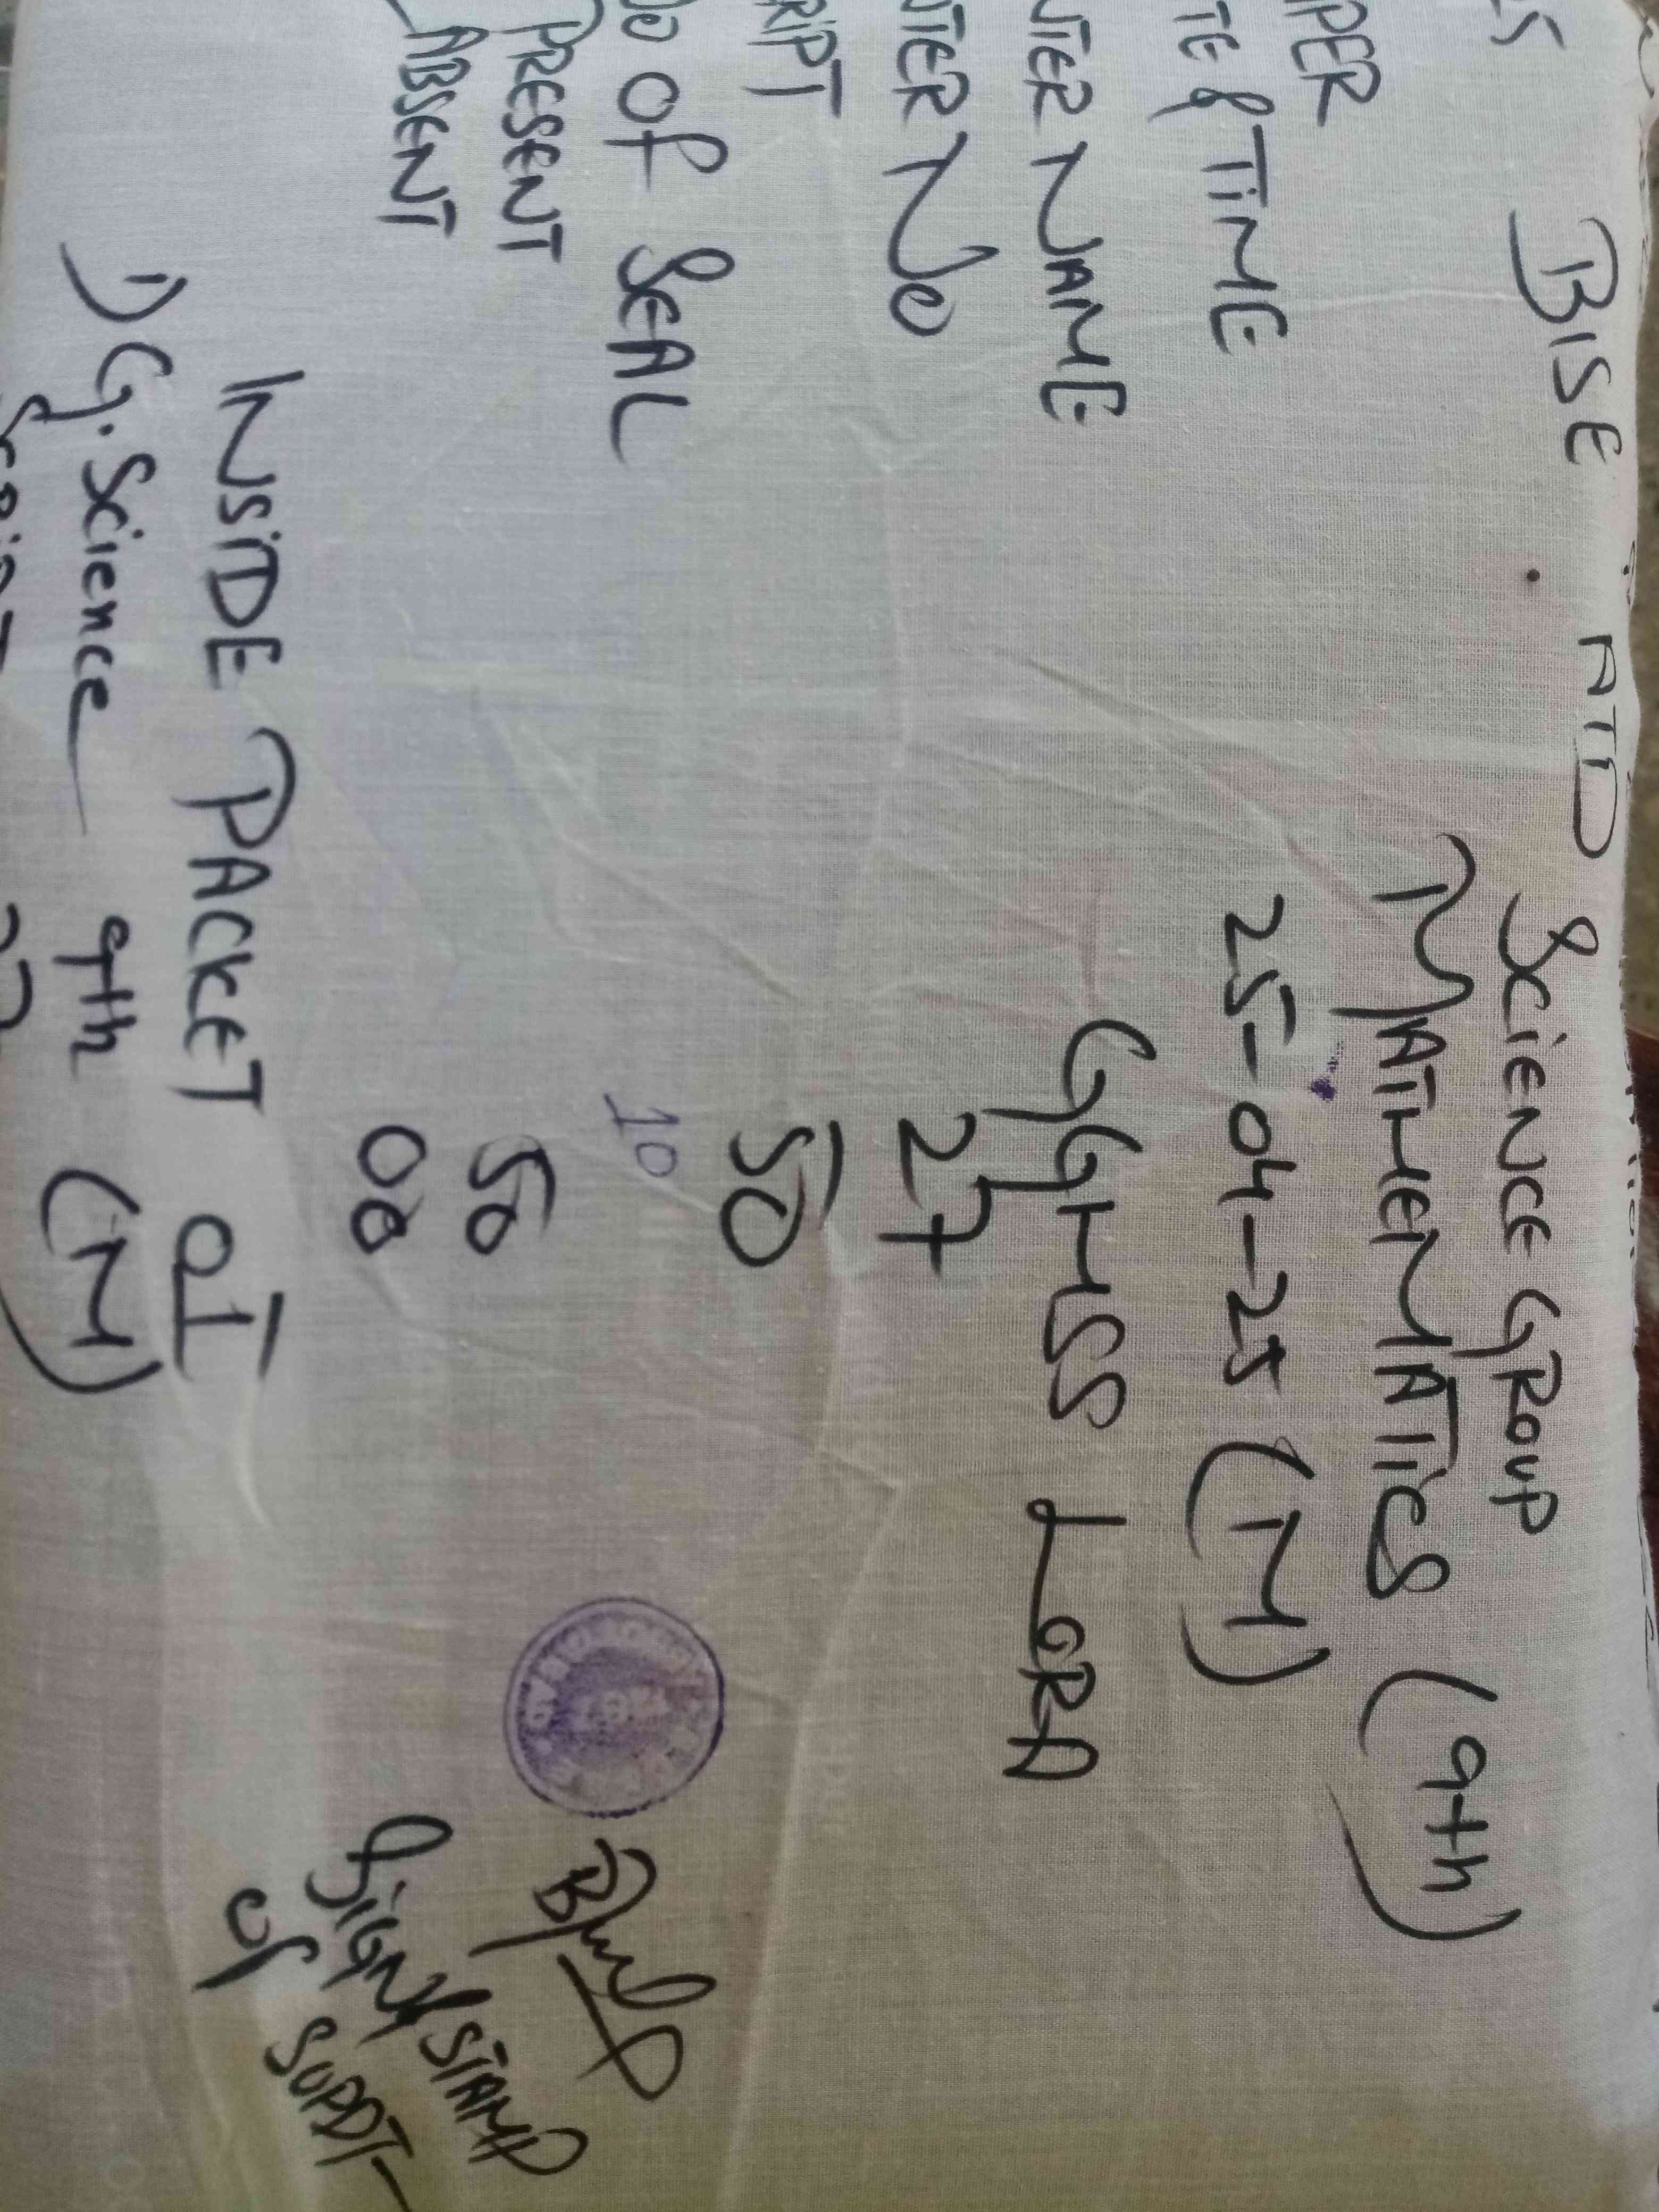 25 BISE ATD SCIENCE GROUP
PER MATHEMATICS (9th)
TE & TIME 25-04-25 (M)
NTER NAME GGHSS LORA
NTER No 27
RIPT 50
No OF SEAL 10
PRESENT 50
ABSENT 00
Sign/STAMP
of SUPDT-
INSIDE PACKET 01
1) G. Science 9th (M)